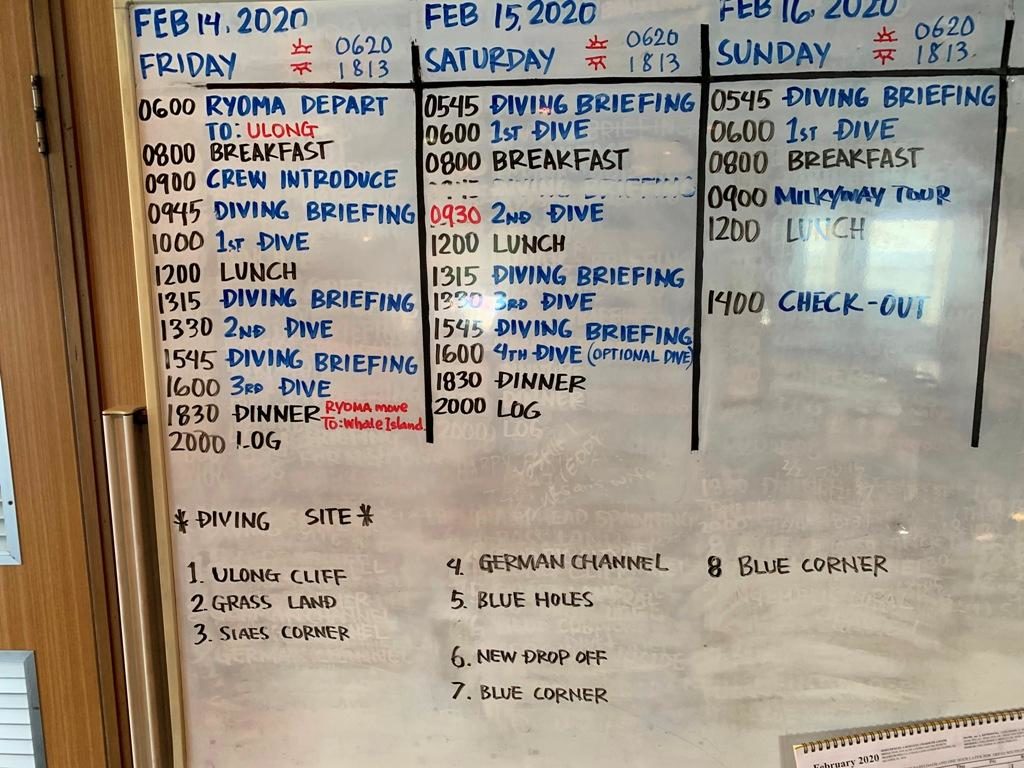 FEB 14, 2020
FRIDAY 0620
1813
0600 RYOMA DEPART
TO: ULONG
0800 BREAKFAST
0900 CREW INTRODUCE
0945 DIVING BRIEFING
1000 1ST DIVE
1200 LUNCH
1315 DIVING BRIEFING
1330 2ND DIVE
1545 DIVING BRIEFING
1600 3RD DIVE
1830 DINNER RYOMA move
To: Whale Island
2000 LOG
FEB 15, 2020
SATURDAY 0620
1813
0545 DIVING BRIEFING
0600 1ST DIVE
0800 BREAKFAST
0930 2ND DIVE
1200 LUNCH
1315 DIVING BRIEFING
1330 3RD DIVE
1545 DIVING BRIEFING
1600 4TH DIVE (OPTIONAL DIVE)
1830 DINNER
2000 LOG
FEB 16, 2020
SUNDAY 0620
1813.
0545 DIVING BRIEFING
0600 1ST DIVE
0800 BREAKFAST
0900 MILKYWAY TOUR
1200 LUNCH
1400 CHECK-OUT
* DIVING SITE *
1. ULONG CLIFF
2. GRASS LAND
3. SIAES CORNER
4. GERMAN CHANNEL
5. BLUE HOLES
6. NEW DROP OFF
7. BLUE CORNER
8 BLUE CORNER
February 2020